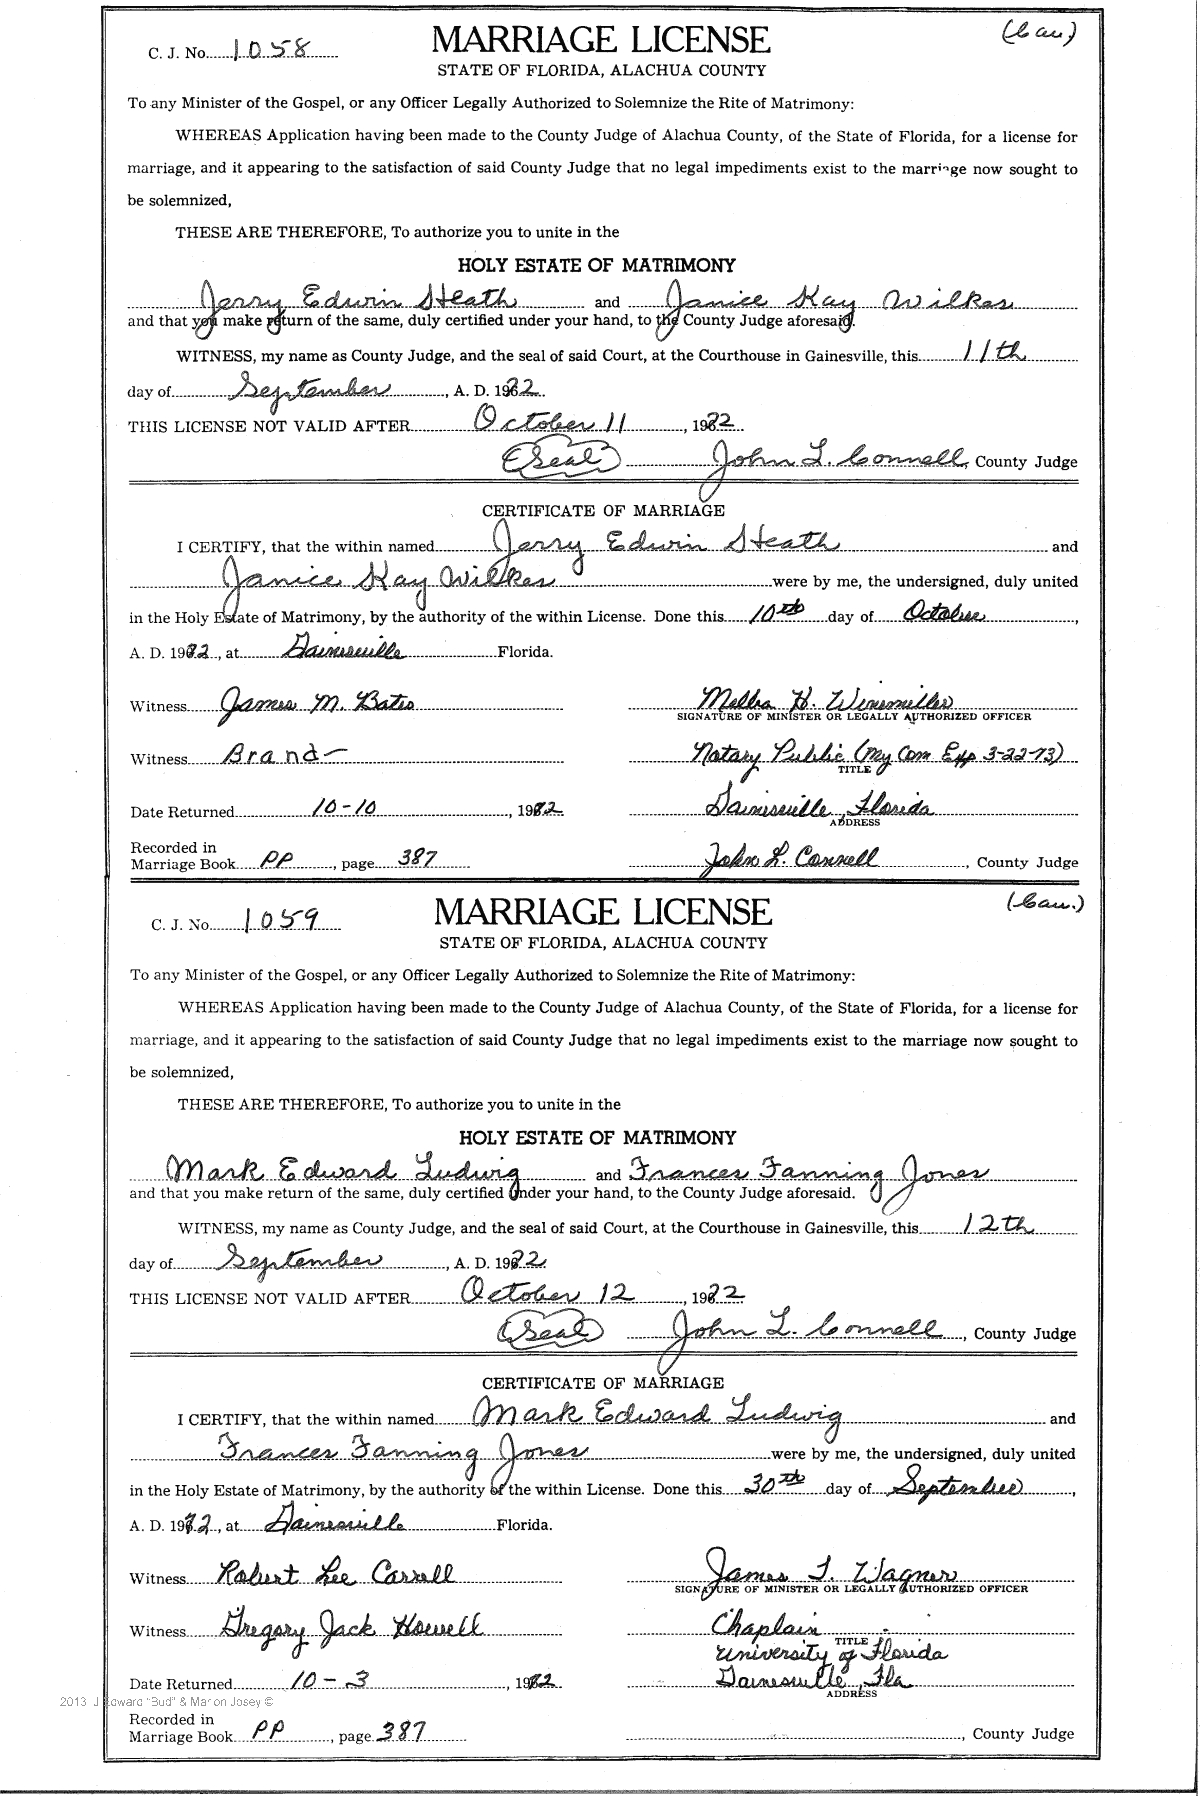 C. J. No. 1058
MARRIAGE LICENSE
(Cau)
STATE OF FLORIDA, ALACHUA COUNTY
To any Minister of the Gospel, or any Officer Legally Authorized to Solemnize the Rite of Matrimony:
WHEREAS Application having been made to the County Judge of Alachua County, of the State of Florida, for a license for
marriage, and it appearing to the satisfaction of said County Judge that no legal impediments exist to the marriage now sought to
be solemnized,
THESE ARE THEREFORE, To authorize you to unite in the
HOLY ESTATE OF MATRIMONY
Jerry Edwin Heath and Janice Kay Wilkes
and that you make return of the same, duly certified under your hand, to the County Judge aforesaid.
WITNESS, my name as County Judge, and the seal of said Court, at the Courthouse in Gainesville, this 11th
day of September, A. D. 1972.
THIS LICENSE NOT VALID AFTER October 11, 1972
(Seal) John L. Connell, County Judge
CERTIFICATE OF MARRIAGE
I CERTIFY, that the within named Jerry Edwin Heath and
Janice Kay Wilkes were by me, the undersigned, duly united
in the Holy Estate of Matrimony, by the authority of the within License. Done this 10th day of October,
A. D. 1972, at Gainesville Florida.
Witness James M. Bates
Melba H. Winemiller
SIGNATURE OF MINISTER OR LEGALLY AUTHORIZED OFFICER
Witness Brand
Notary Public (My Com Exp 3-22-73)
TITLE
Date Returned 10-10, 1972
Gainesville, Florida
ADDRESS
Recorded in
Marriage Book PP, page 387
John L. Connell, County Judge
C. J. No. 1059
MARRIAGE LICENSE
(Cau.)
STATE OF FLORIDA, ALACHUA COUNTY
To any Minister of the Gospel, or any Officer Legally Authorized to Solemnize the Rite of Matrimony:
WHEREAS Application having been made to the County Judge of Alachua County, of the State of Florida, for a license for
marriage, and it appearing to the satisfaction of said County Judge that no legal impediments exist to the marriage now sought to
be solemnized,
THESE ARE THEREFORE, To authorize you to unite in the
HOLY ESTATE OF MATRIMONY
Mark Edward Ludwig and Frances Fanning Jones
and that you make return of the same, duly certified under your hand, to the County Judge aforesaid.
WITNESS, my name as County Judge, and the seal of said Court, at the Courthouse in Gainesville, this 12th
day of September, A. D. 1972
THIS LICENSE NOT VALID AFTER October 12, 1972
(Seal) John L. Connell, County Judge
CERTIFICATE OF MARRIAGE
I CERTIFY, that the within named Mark Edward Ludwig and
Frances Fanning Jones were by me, the undersigned, duly united
in the Holy Estate of Matrimony, by the authority of the within License. Done this 30th day of September,
A. D. 1972, at Gainesville Florida.
Witness Robert Lee Carroll
James T. Wagner
SIGNATURE OF MINISTER OR LEGALLY AUTHORIZED OFFICER
Witness Gregory Jack Howell
Chaplain
TITLE
University of Florida
Date Returned 10-3, 1972
Gainesville, Fla
ADDRESS
2013 J Edward "Bud" & Marion Josey ©
Recorded in
Marriage Book PP, page 387
, County Judge